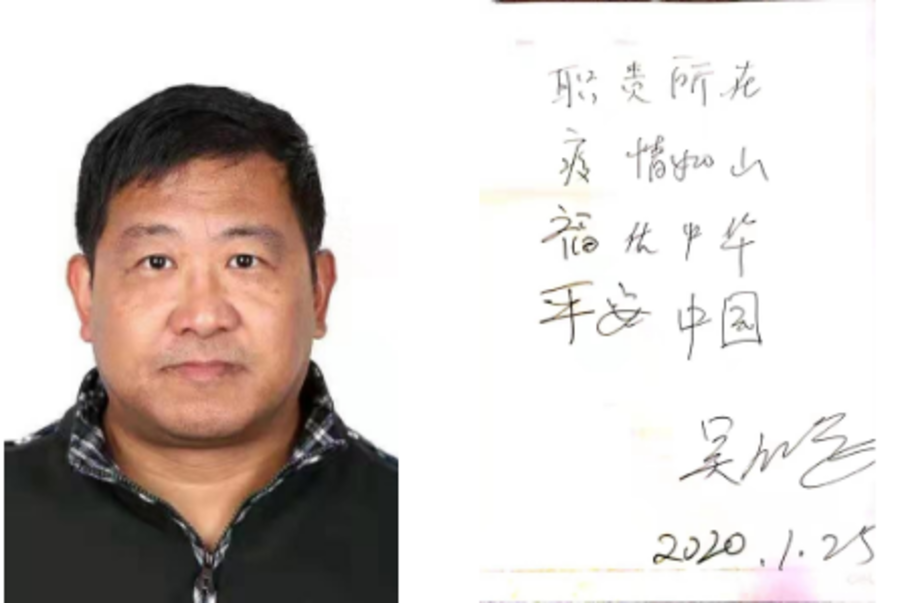 职责所在
疫情如山
福佑中华
平安中国
吴
2020.1.25